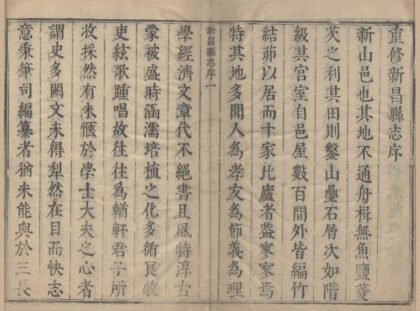 重修新昌縣志序
新山邑也其地不通舟楫無魚鹽菱
芡之利其田則鑿山壘石層次如階
級其宮室自邑屋數百間外皆編竹
結茆以居而十家比廬者葢寥寥焉
特其地多聞人為孝友為節義為理
新昌縣志序 一
學經濟文章代不絕書且風特淳古
蒙被盛時涵濡培植之化多循良牧
吏絃歌踵唱故往往為輶軒君子所
收採然有未愜於學士大夫之心者
謂史多闕文未得犁然在目而快志
意乘筆司編纂者猶未能與於三長